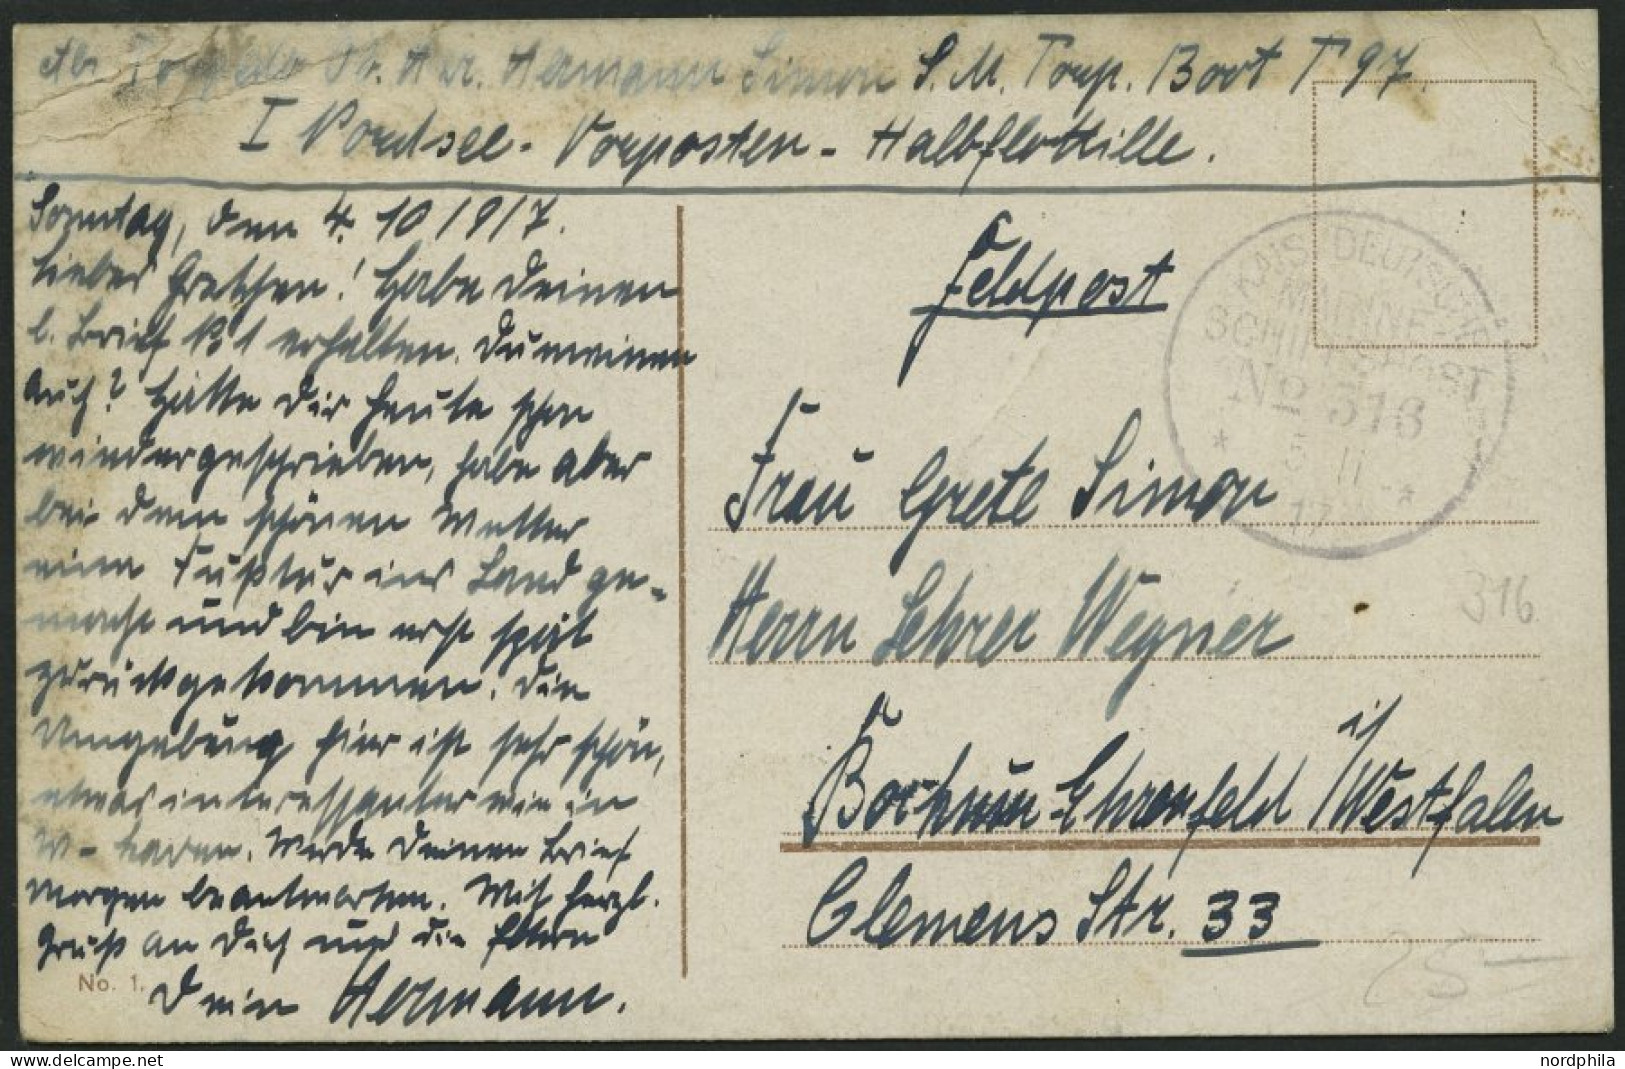 Hermann Simon S.M. Torp. Boot T 97.
I Nordsee-Vorposten-Halbflottille.
Sonntag, den 4. 10 1917.
Liebes Gretchen! Habe Deinen
l. Brief № 1 erhalten. Du meinen
auch? Hätte Dir heute schon
wiedergeschrieben, habe aber
bei dem schönen Wetter
eine Fußtur ins Land ge-
macht und bin erst spät
zurückgekommen. Die
Umgebung hier ist sehr schön,
etwas interessanter wie in
W-haven. Werde Deinen Brief
morgen beantworten. Mit herzl.
Gruß an Dich und die Eltern
Dein Hermann.
No. 1.
Feldpost
KAIS. DEUTSCHE
MARINE-
SCHIFFSPOST
No 316
* 5 11 *
17
Frau Grete Simon
Herrn Lehrer Wegner
316
Bochum Ehrenfeld i/Westfalen
Clemens Str. 33
25-
nordphila